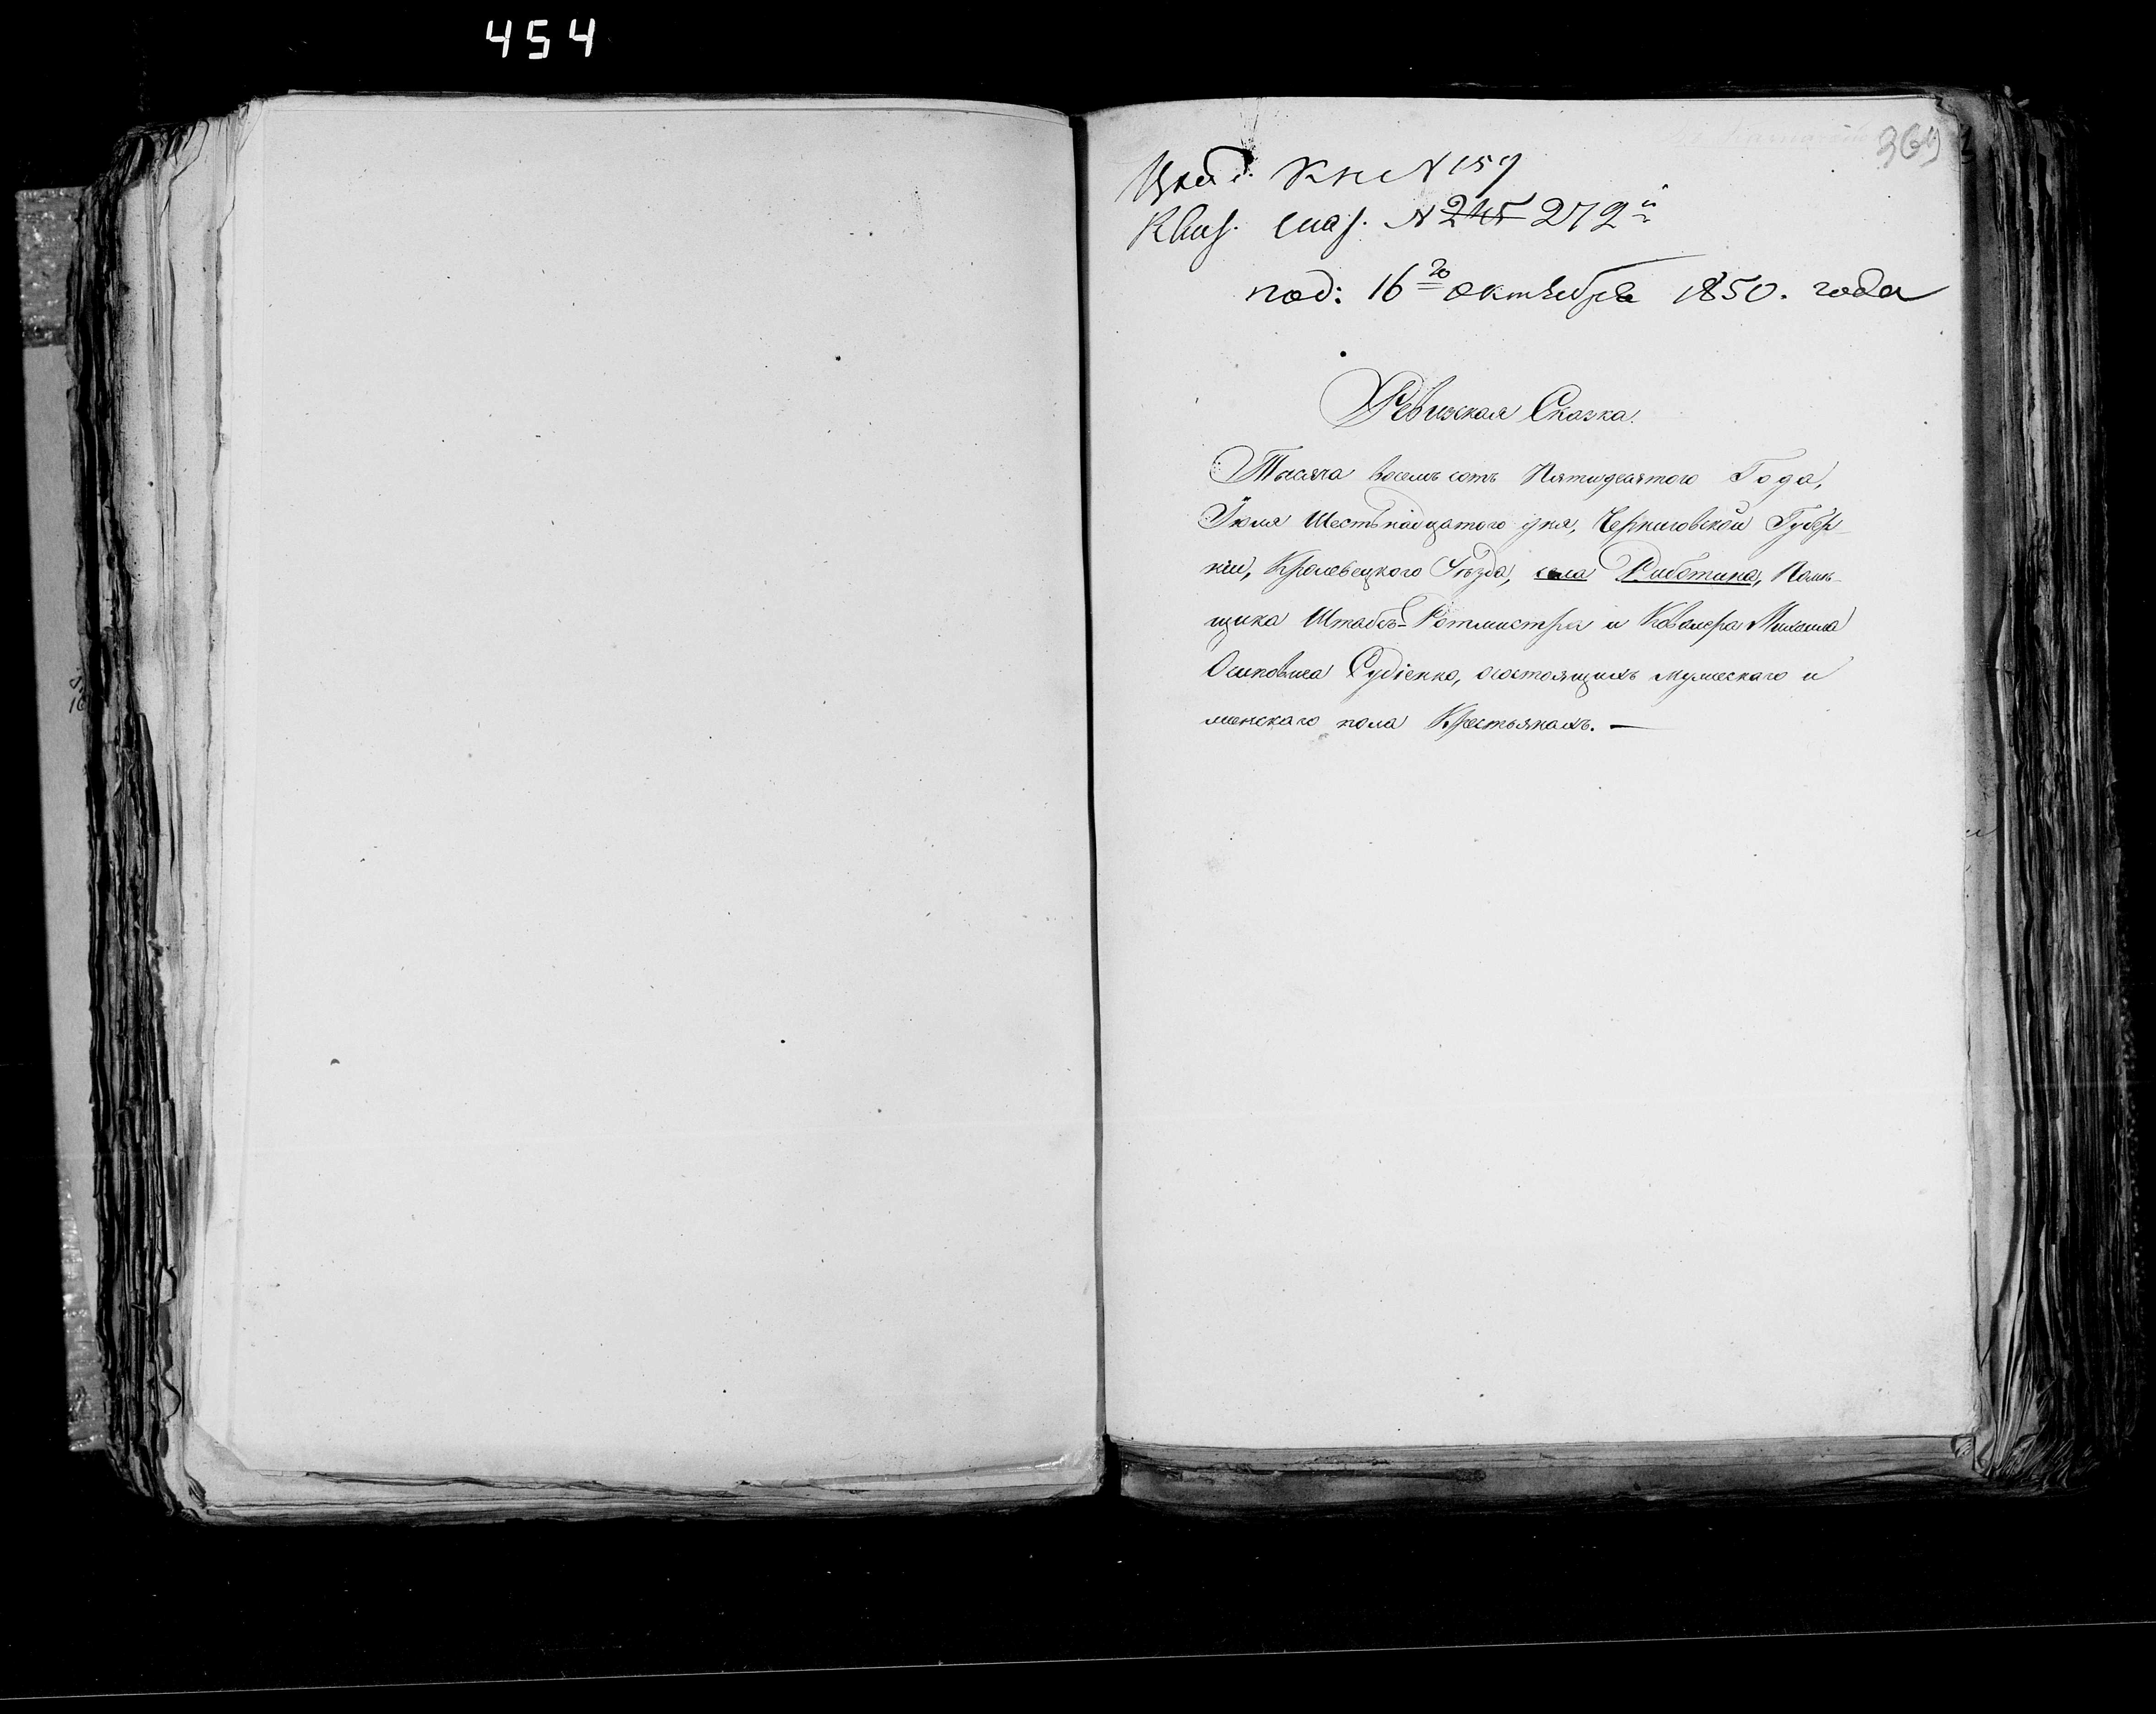 454
369
Кн N 159
Квит. N 245 272й
под: 16го октября 1850. года
Ревизская Сказка.
Тысяча восемь сотъ Пятидесятого Года,
Июля Шестьнадцатого дня, Черниговской Губер-
нiи, Кролевецкого Уѣзда, села Работина, Помѣ-
щика Штабсъ-Ротмистра и Кавалера Михаила
Осиповича Судiенко, о состоящихъ мужескаго и
женскаго пола Крестьянахъ. —